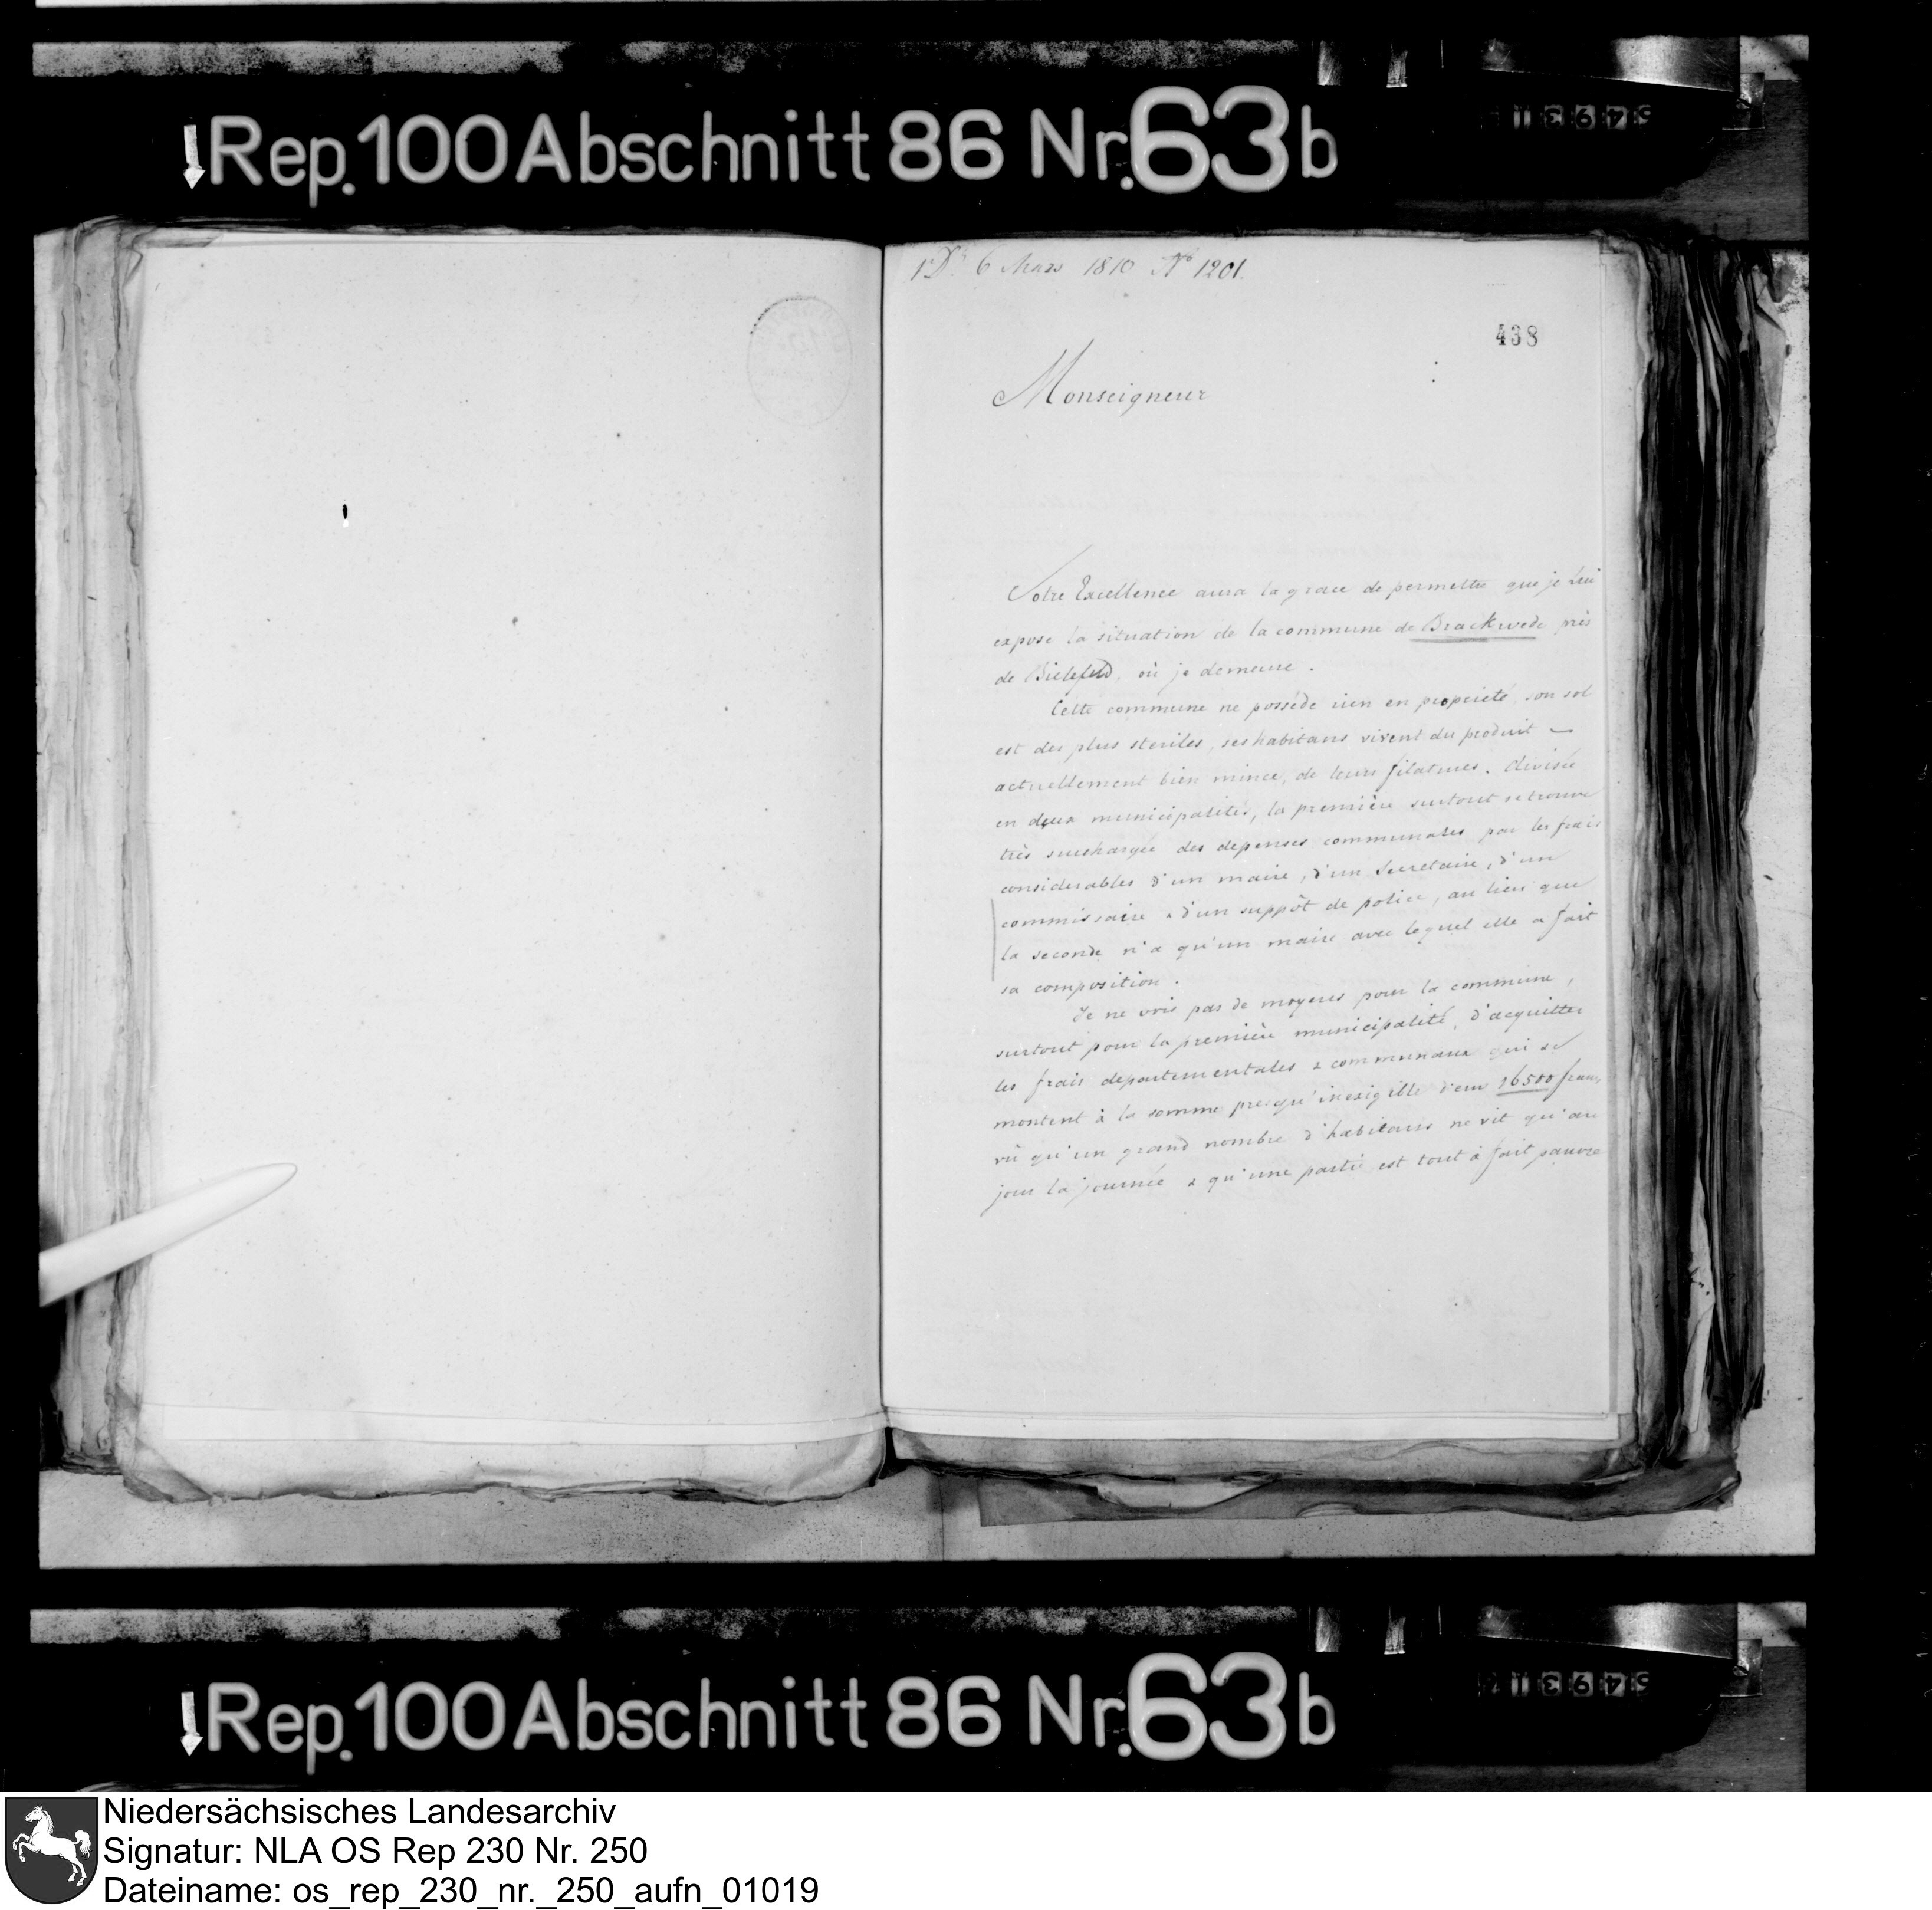 Rep. 100 Abschnitt 86 Nr. 63 b
6 Mars 1810 No 1201.
438
Monseigneur
Votre Excellence aura la grace de permettre que je Lui
expose la situation de la commune de Brackwede près
de Bielefeld, où je demeure.
Cette commune ne posséde rien en propriété, son sol
est des plus steriles, ses habitans vivent du produit
actuellement bien mince, de leurs filatures. Divisée
en deux municipalités, la première surtout se trouve
très surchargée des depenses communales par les frais
considerables d'un maire, d'un Secretaire, d'un
commissaire & d'un suppôt de police, au lieu que
la seconde n'a qu'un maire avec lequel elle a fait
sa composition.
Je ne vois pas de moyens pour la commune,
surtout pour la première municipalité, d'acquitter
les frais departementales & communaux qui se
montent à la somme presqu'inexigible d'env 16500 francs
vû qu'un grand nombre d'habitans ne vit qu'au
jour la journée & qu'une partie est tout à fait pauvre
Rep. 100 Abschnitt 86 Nr. 63 b
Niedersächsisches Landesarchiv
Signatur: NLA OS Rep 230 Nr. 250
Dateiname: os_rep_230_nr._250_aufn_01019